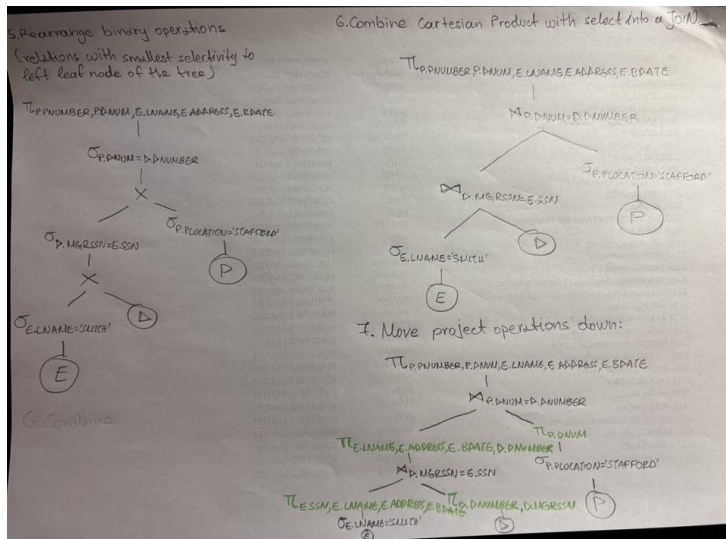 5. Rearrange binary operations
(relations with smallest selectivity to
left leaf node of the tree)
π P.PNUMBER, P.DNUM, E.LNAME, E.ADDRESS, E.BDATE
σ P.DNUM=D.DNUMBER
X
σ D.MGRSSN=E.SSN
σ P.PLOCATION='STAFFORD'
X
P
σ E.LNAME='SMITH'
D
E
6. Combine
6. Combine Cartesian Product with select into a JOIN
π P.PNUMBER, P.DNUM, E.LNAME, E.ADDRESS, E.BDATE
⋈ P.DNUM=D.DNUMBER
σ P.PLOCATION='STAFFORD'
⋈ D.MGRSSN=E.SSN
P
σ E.LNAME='SMITH'
D
E
7. Move project operations down:
π P.PNUMBER, P.DNUM, E.LNAME, E ADDRESS, E.BDATE
⋈ P.DNUM=D.DNUMBER
π P.DNUM
π E.LNAME, E.ADDRESS, E.BDATE, D.DNUMBER
σ P.PLOCATION='STAFFORD'
⋈ D.MGRSSN=E.SSN
P
π E.SSN, E.LNAME, E.ADDRESS, E.BDATE
π D.DNUMBER, D.MGRSSN
σ E.LNAME='SMITH'
D
E